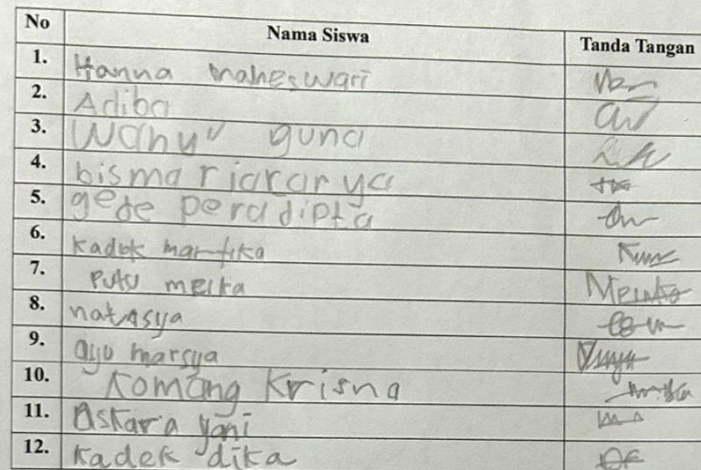 No Nama Siswa Tanda Tangan
1. Hanna maheswari
2. Adiba
3. Wahyu guna
4. bisma riararya
5. gede peradipta
6. Kadek martika
7. Putu meita
8. natasya
9. ayu marsya
10. Komang Krisna
11. Askara yani
12. Kadek dika